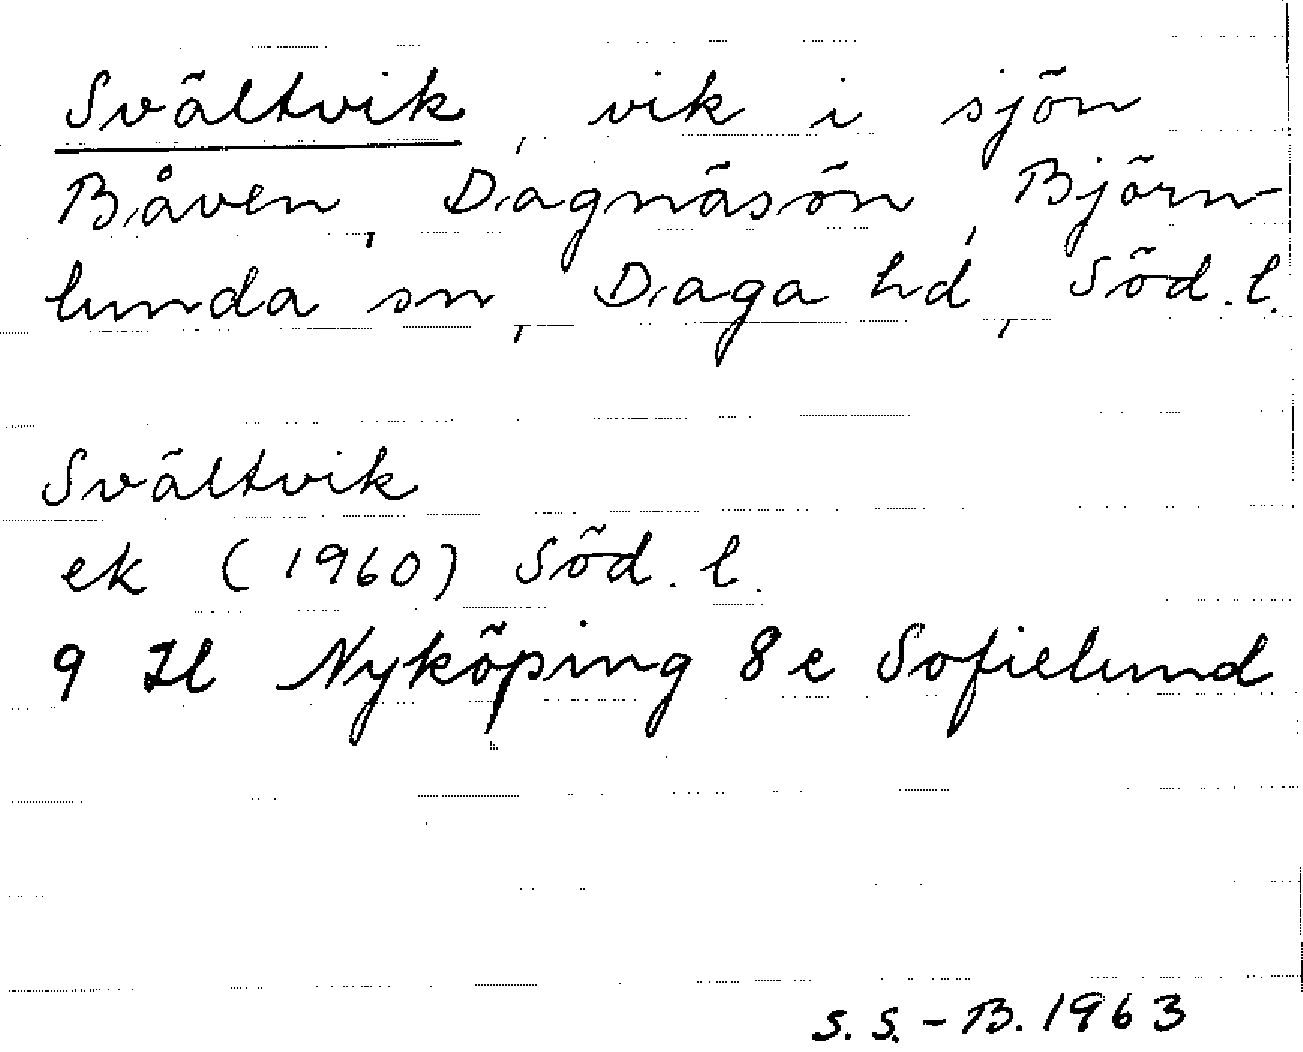 Svältvik, vik i sjön
Båven, Dagnäsön, Björn-
lunda sn, Daga hd, Söd. l.
Svältvik
ek (1960) Söd. l.
9 H Nyköping 8 e Sofielund
S. S.-B. 1963